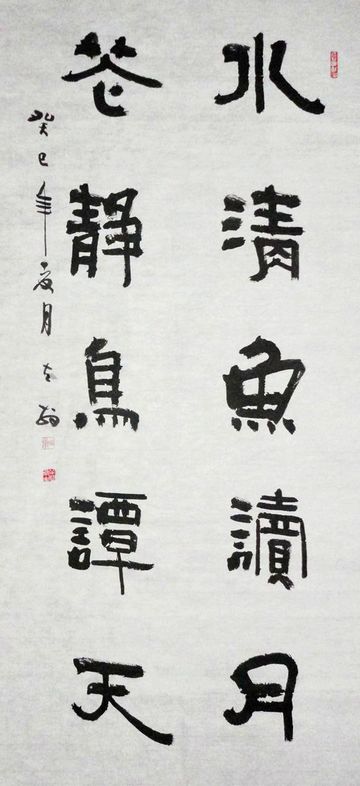 水清魚讀月
花靜鳥譚天
癸巳年夏月